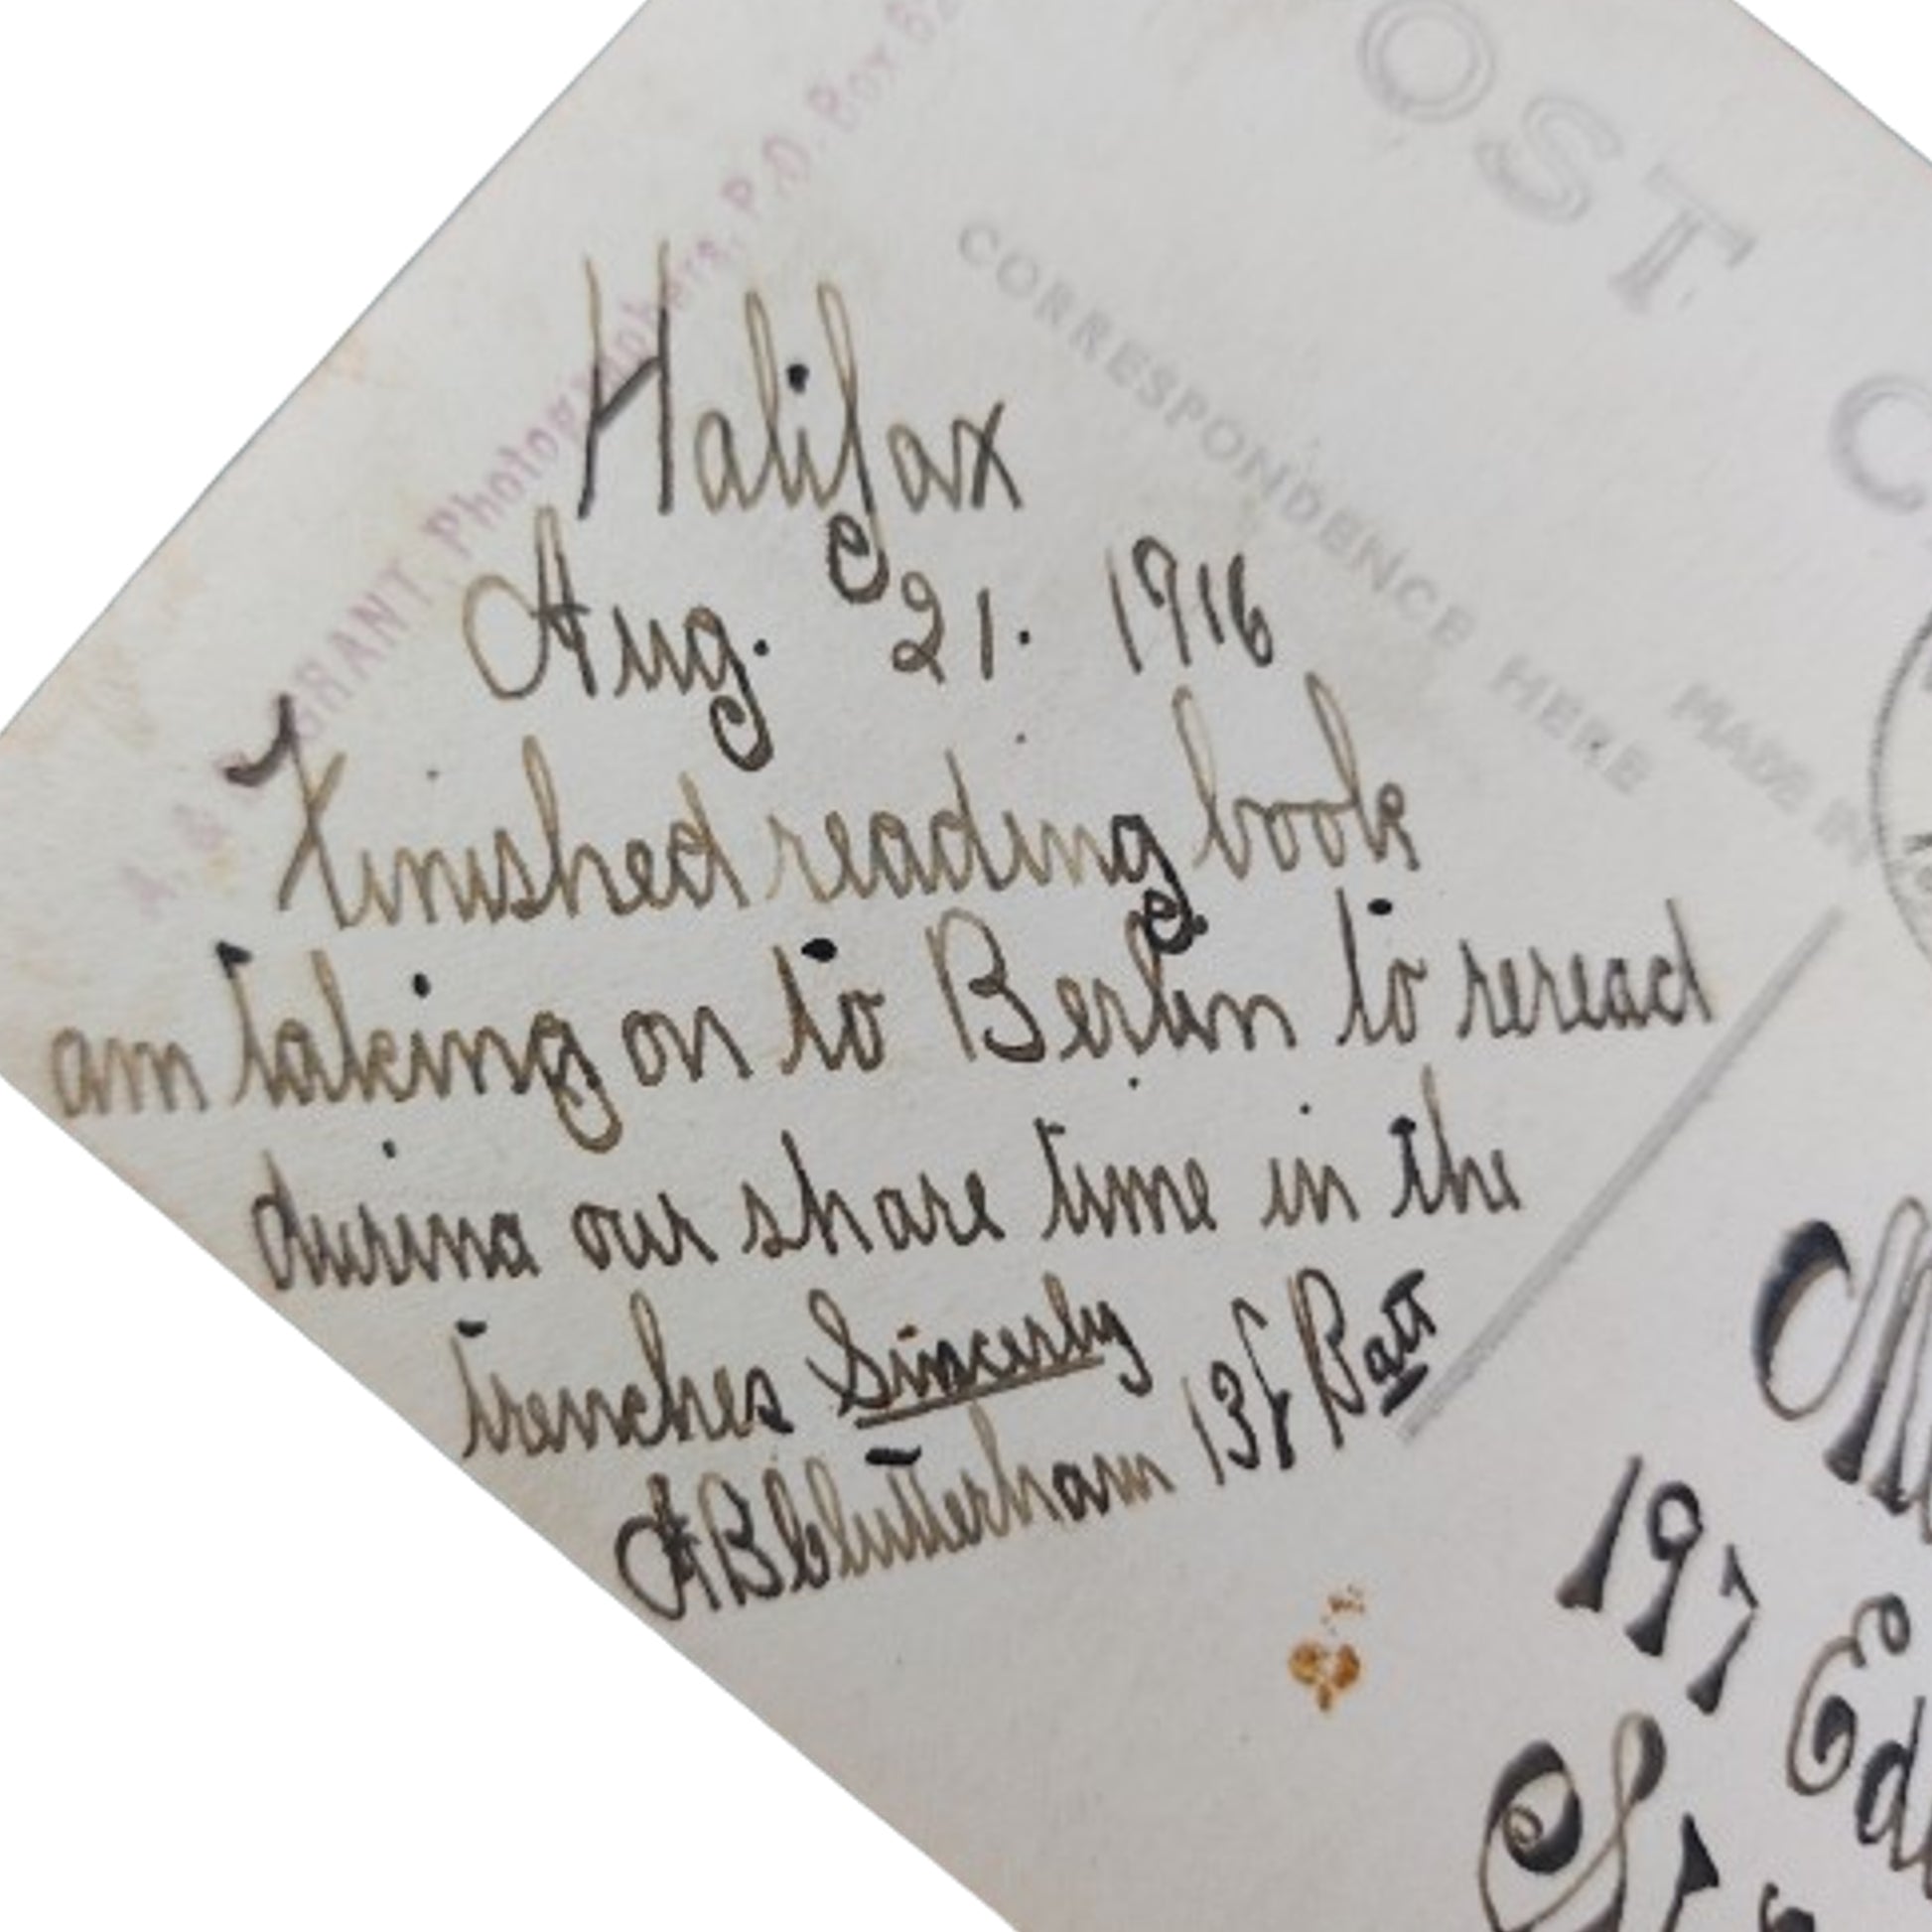 A. & GRANT. Photographers, P.O. Box
OST C
CORRESPONDENCE HERE
MADE IN
Halifax
Aug. 21. 1916
Finished reading book
am taking on to Berlin to reread
during our share time in the
trenches Sincerly
Batt
197 Ed
St